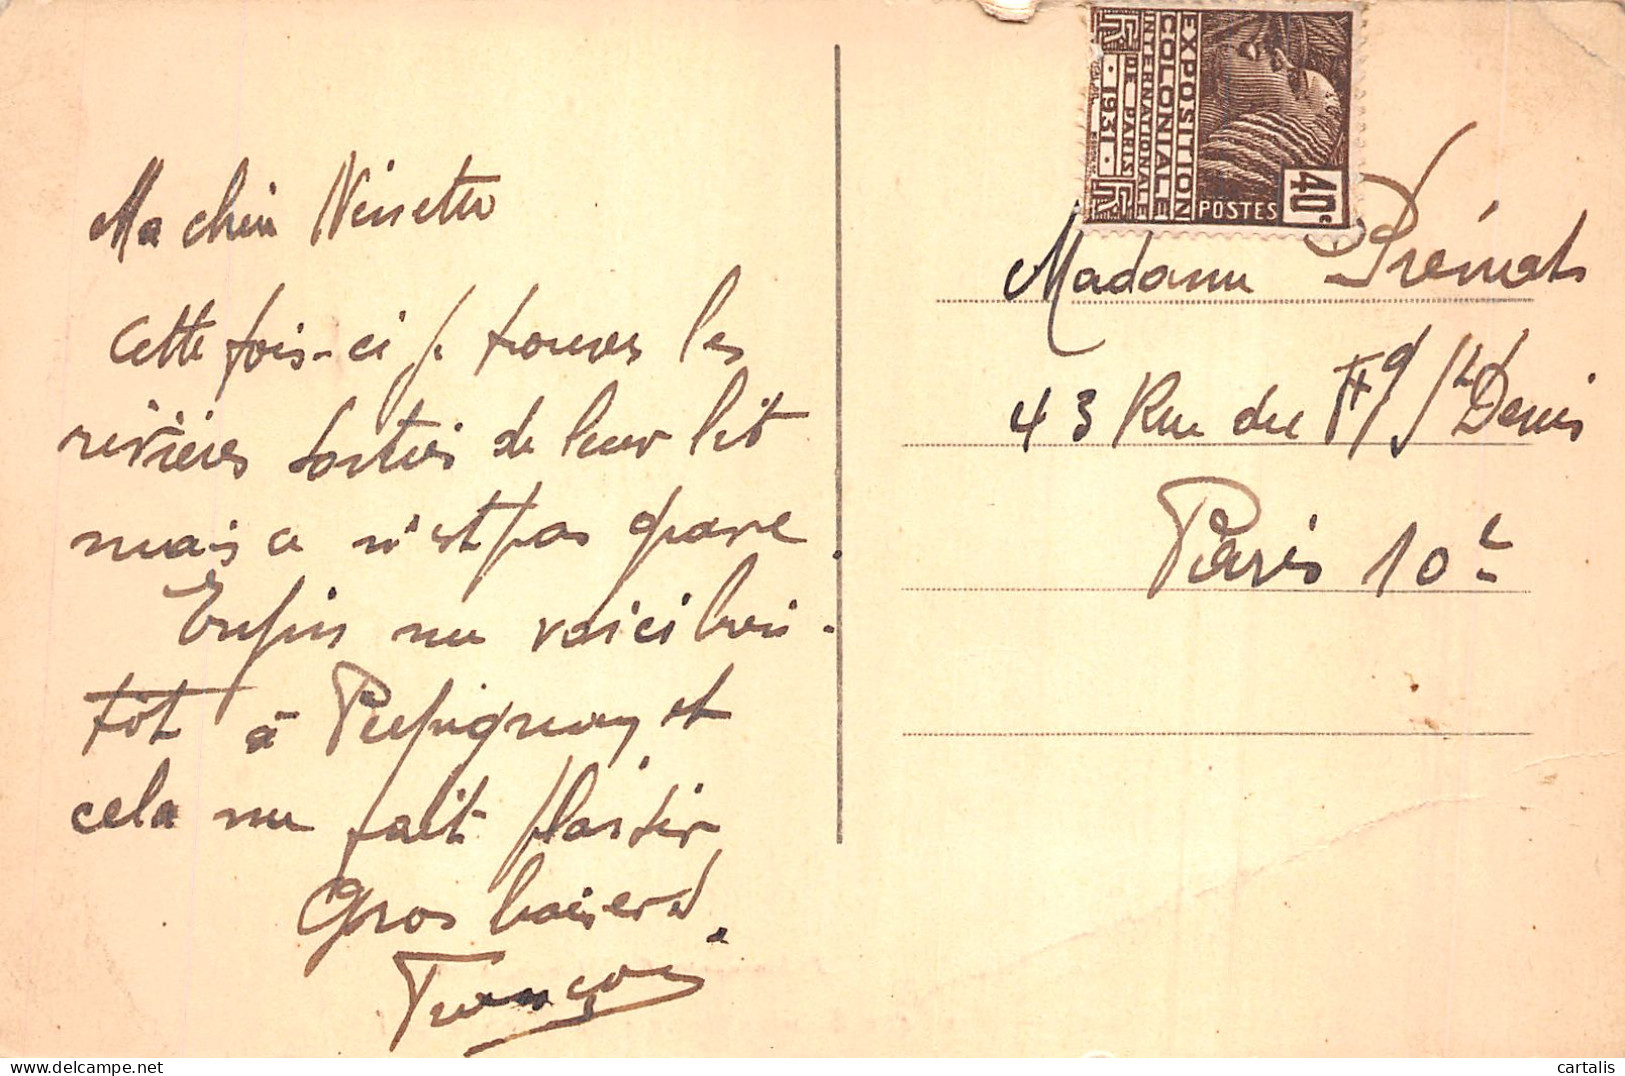 Ma chère Ninette
Cette fois-ci je trouve les
rivières sorties de leur lit
mais ce n'est pas grave.
Enfin me voici bien-
tôt à Perpignan et
cela me fait plaisir
Gros baisers.
François
EXPOSITION
COLONIALE
INTERNATIONALE
DE PARIS
1931
POSTES
40c
Madame Prémat
43 Rue du Fg St Denis
Paris 10e
cartalis.com